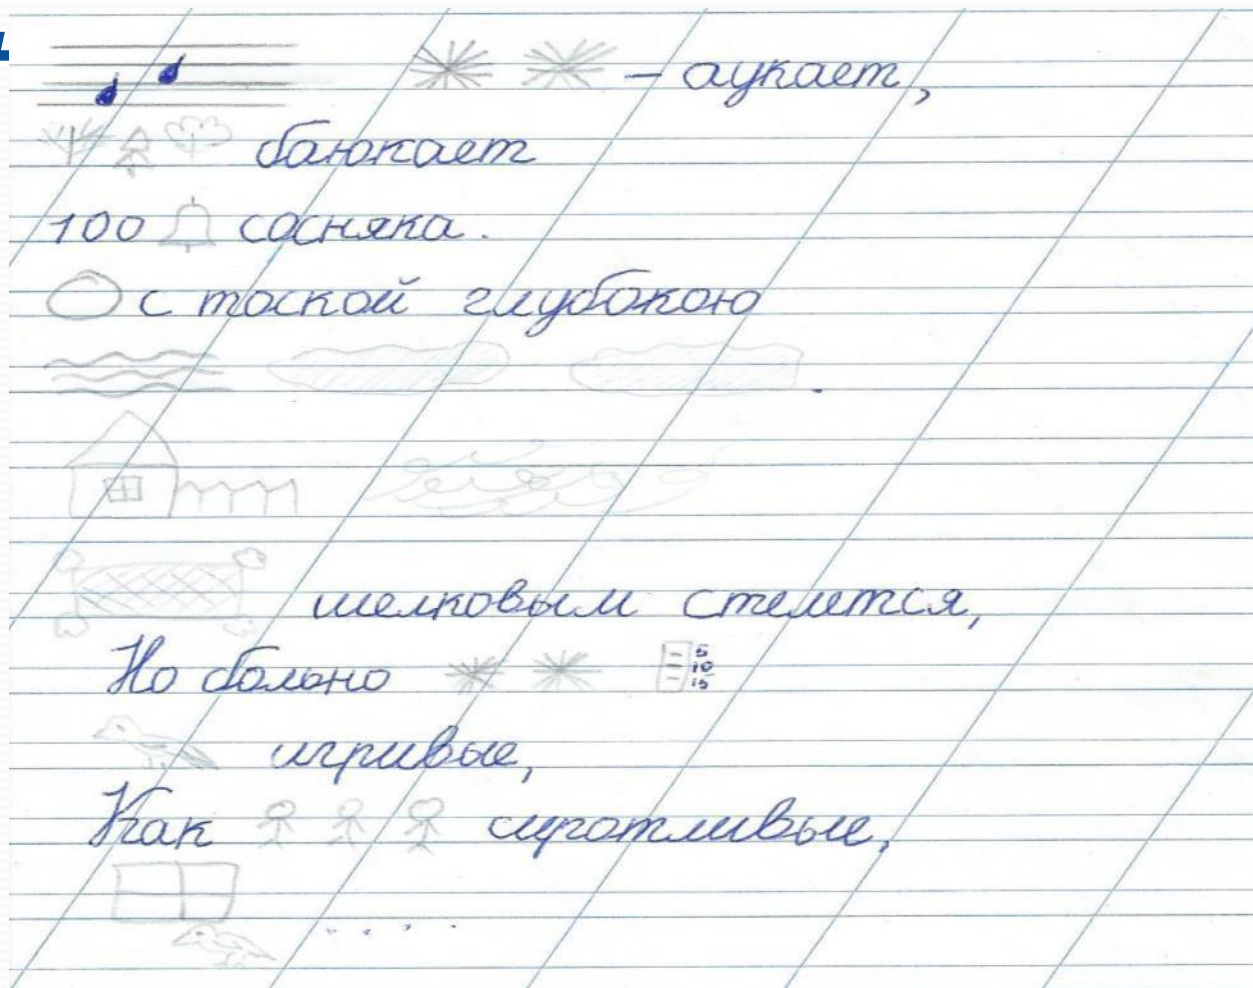 – аукает,
баюкает
100 сосняка.
с тоской глубокою
.
шелковым стелется,
Но больно 5 10 15
игривые,
Как сиротливые,
. . . .